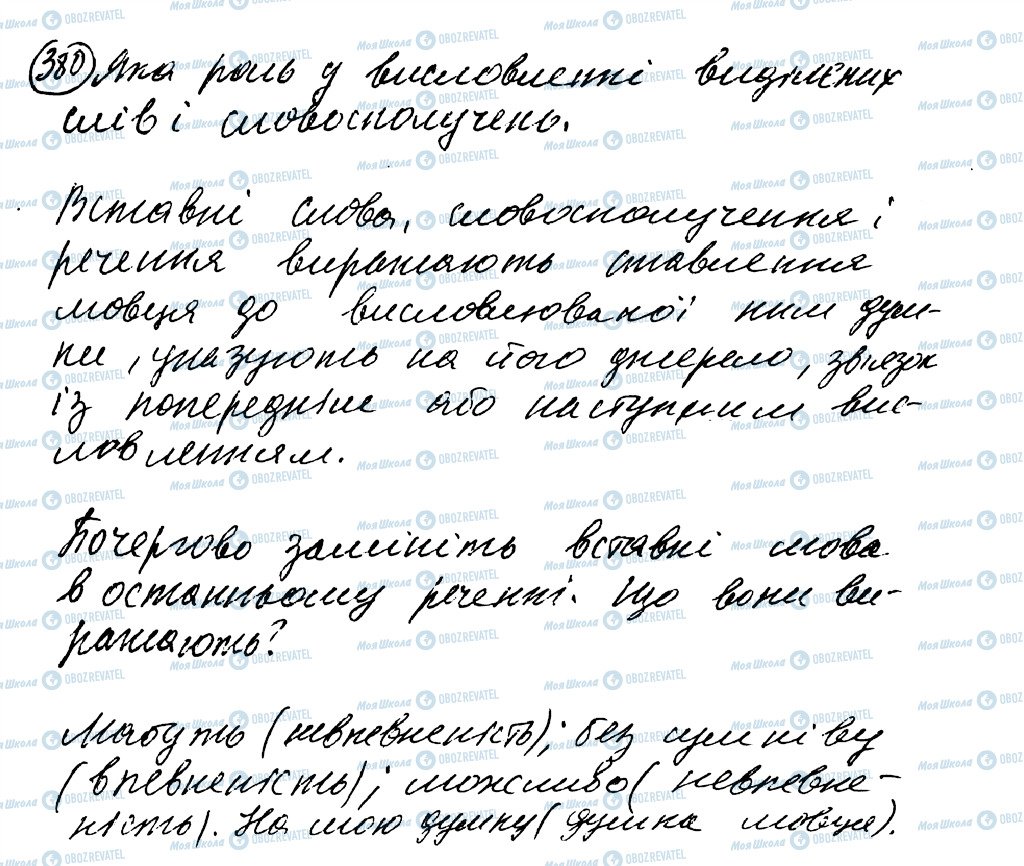 380 Яка роль у висловленні виділених
слів і словосполучень.
Вставні слова, словосполучення і
речення виражають ставлення
мовця до висловлюваної ним дум-
ки, указують на його джерело, зв'язок
із попереднім або наступним вис-
ловленням.
Почергово замініть вставні слова
в останньому реченні. Що вони ви-
ражають?
Мабуть (невпевненість); без сумніву
(впевненість); можливо (невпевне-
ність). На мою думку (думка мовця).